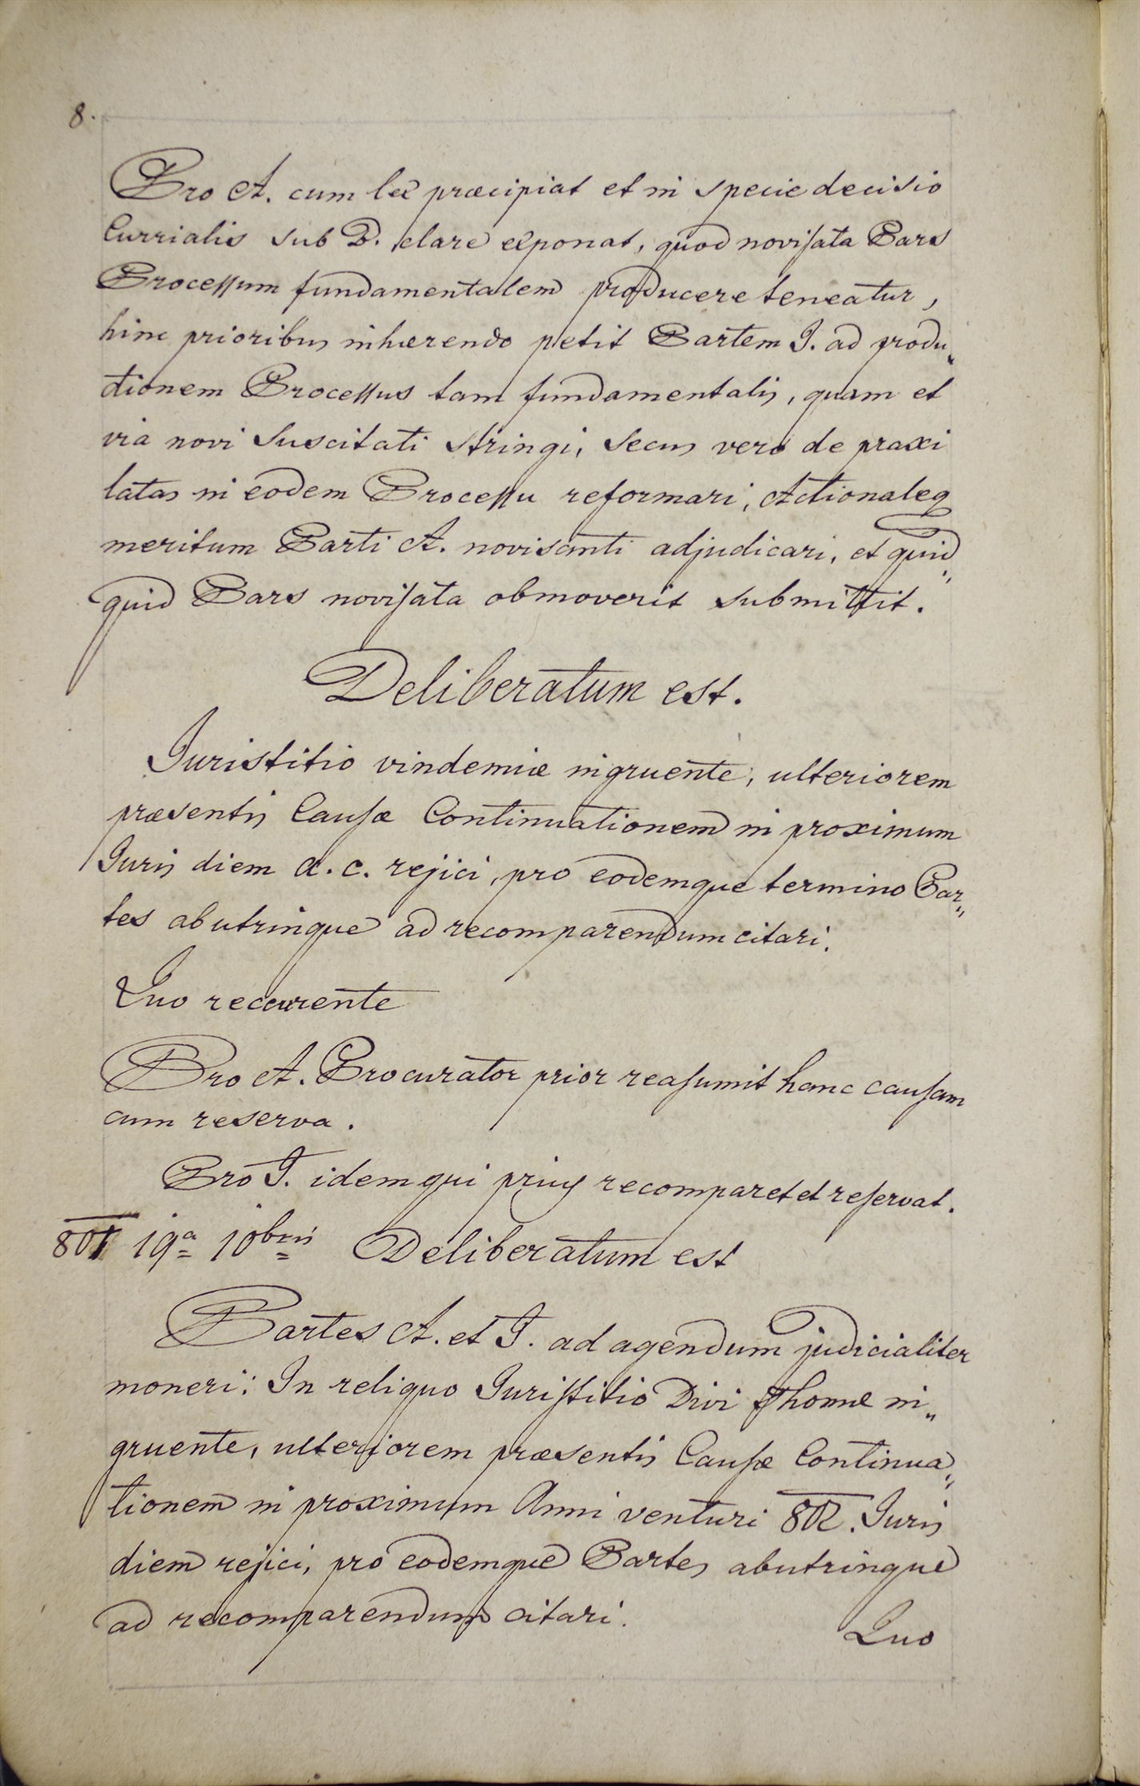 8.
Pro A. cum lex præcipiat et in specie decisio
Currialis sub D. clare exponat, quod novisata Pars
Processum fundamentalem producere teneatur,
hinc prioribus inhærendo petit Partem I. ad produ„
ctionem Processus tam fundamentalis, quam et
via novi suscitati stringi, secus vero de praxi
latas in eodem Processu reformari, Actionaleq
meritum Parti A. novisanti adjudicari, et quid„
quid Pars novisata obmoverit submittit.
Deliberatum est.
Juristitio vindemiæ ingruente, ulteriorem
præsentis Causæ Continuationem in proximum
Juris diem a. c. rejici, pro eodemque termino Par„
tes abutrinque ad recomparendum citari.
Quo recurente
Pro A. Procurator prior reasumit hanc causam
cum reserva.
Pro I. idem qui prius recomparet et reservat.
801 19ª 10bris Deliberatum est
Partes A. et I. ad agendum judicialiter
moneri: In reliquo Juristitio Divi Thomæ in„
gruente, ulteriorem præsentis Causæ Continua„
tionem in proximum Anni venturi 802. Juris
diem rejici, pro eodemque Partes abutrinque
ad recomparendum citari.
Quo